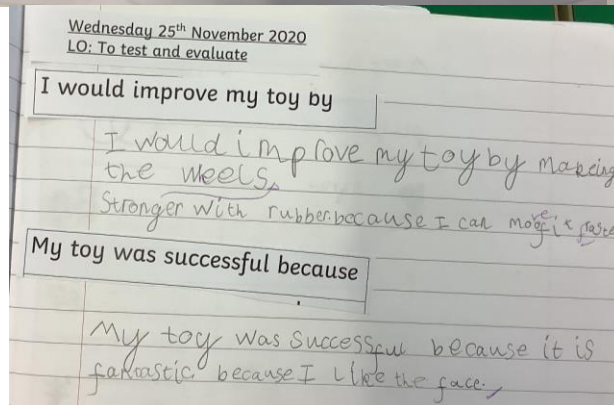 Wednesday 25th November 2020
LO: To test and evaluate
I would improve my toy by
I would improve my toy by makeing
the weels
Stronger with rubber because I can move it faste
My toy was successful because
My toy was successful because it is
fantastic because I like the face.